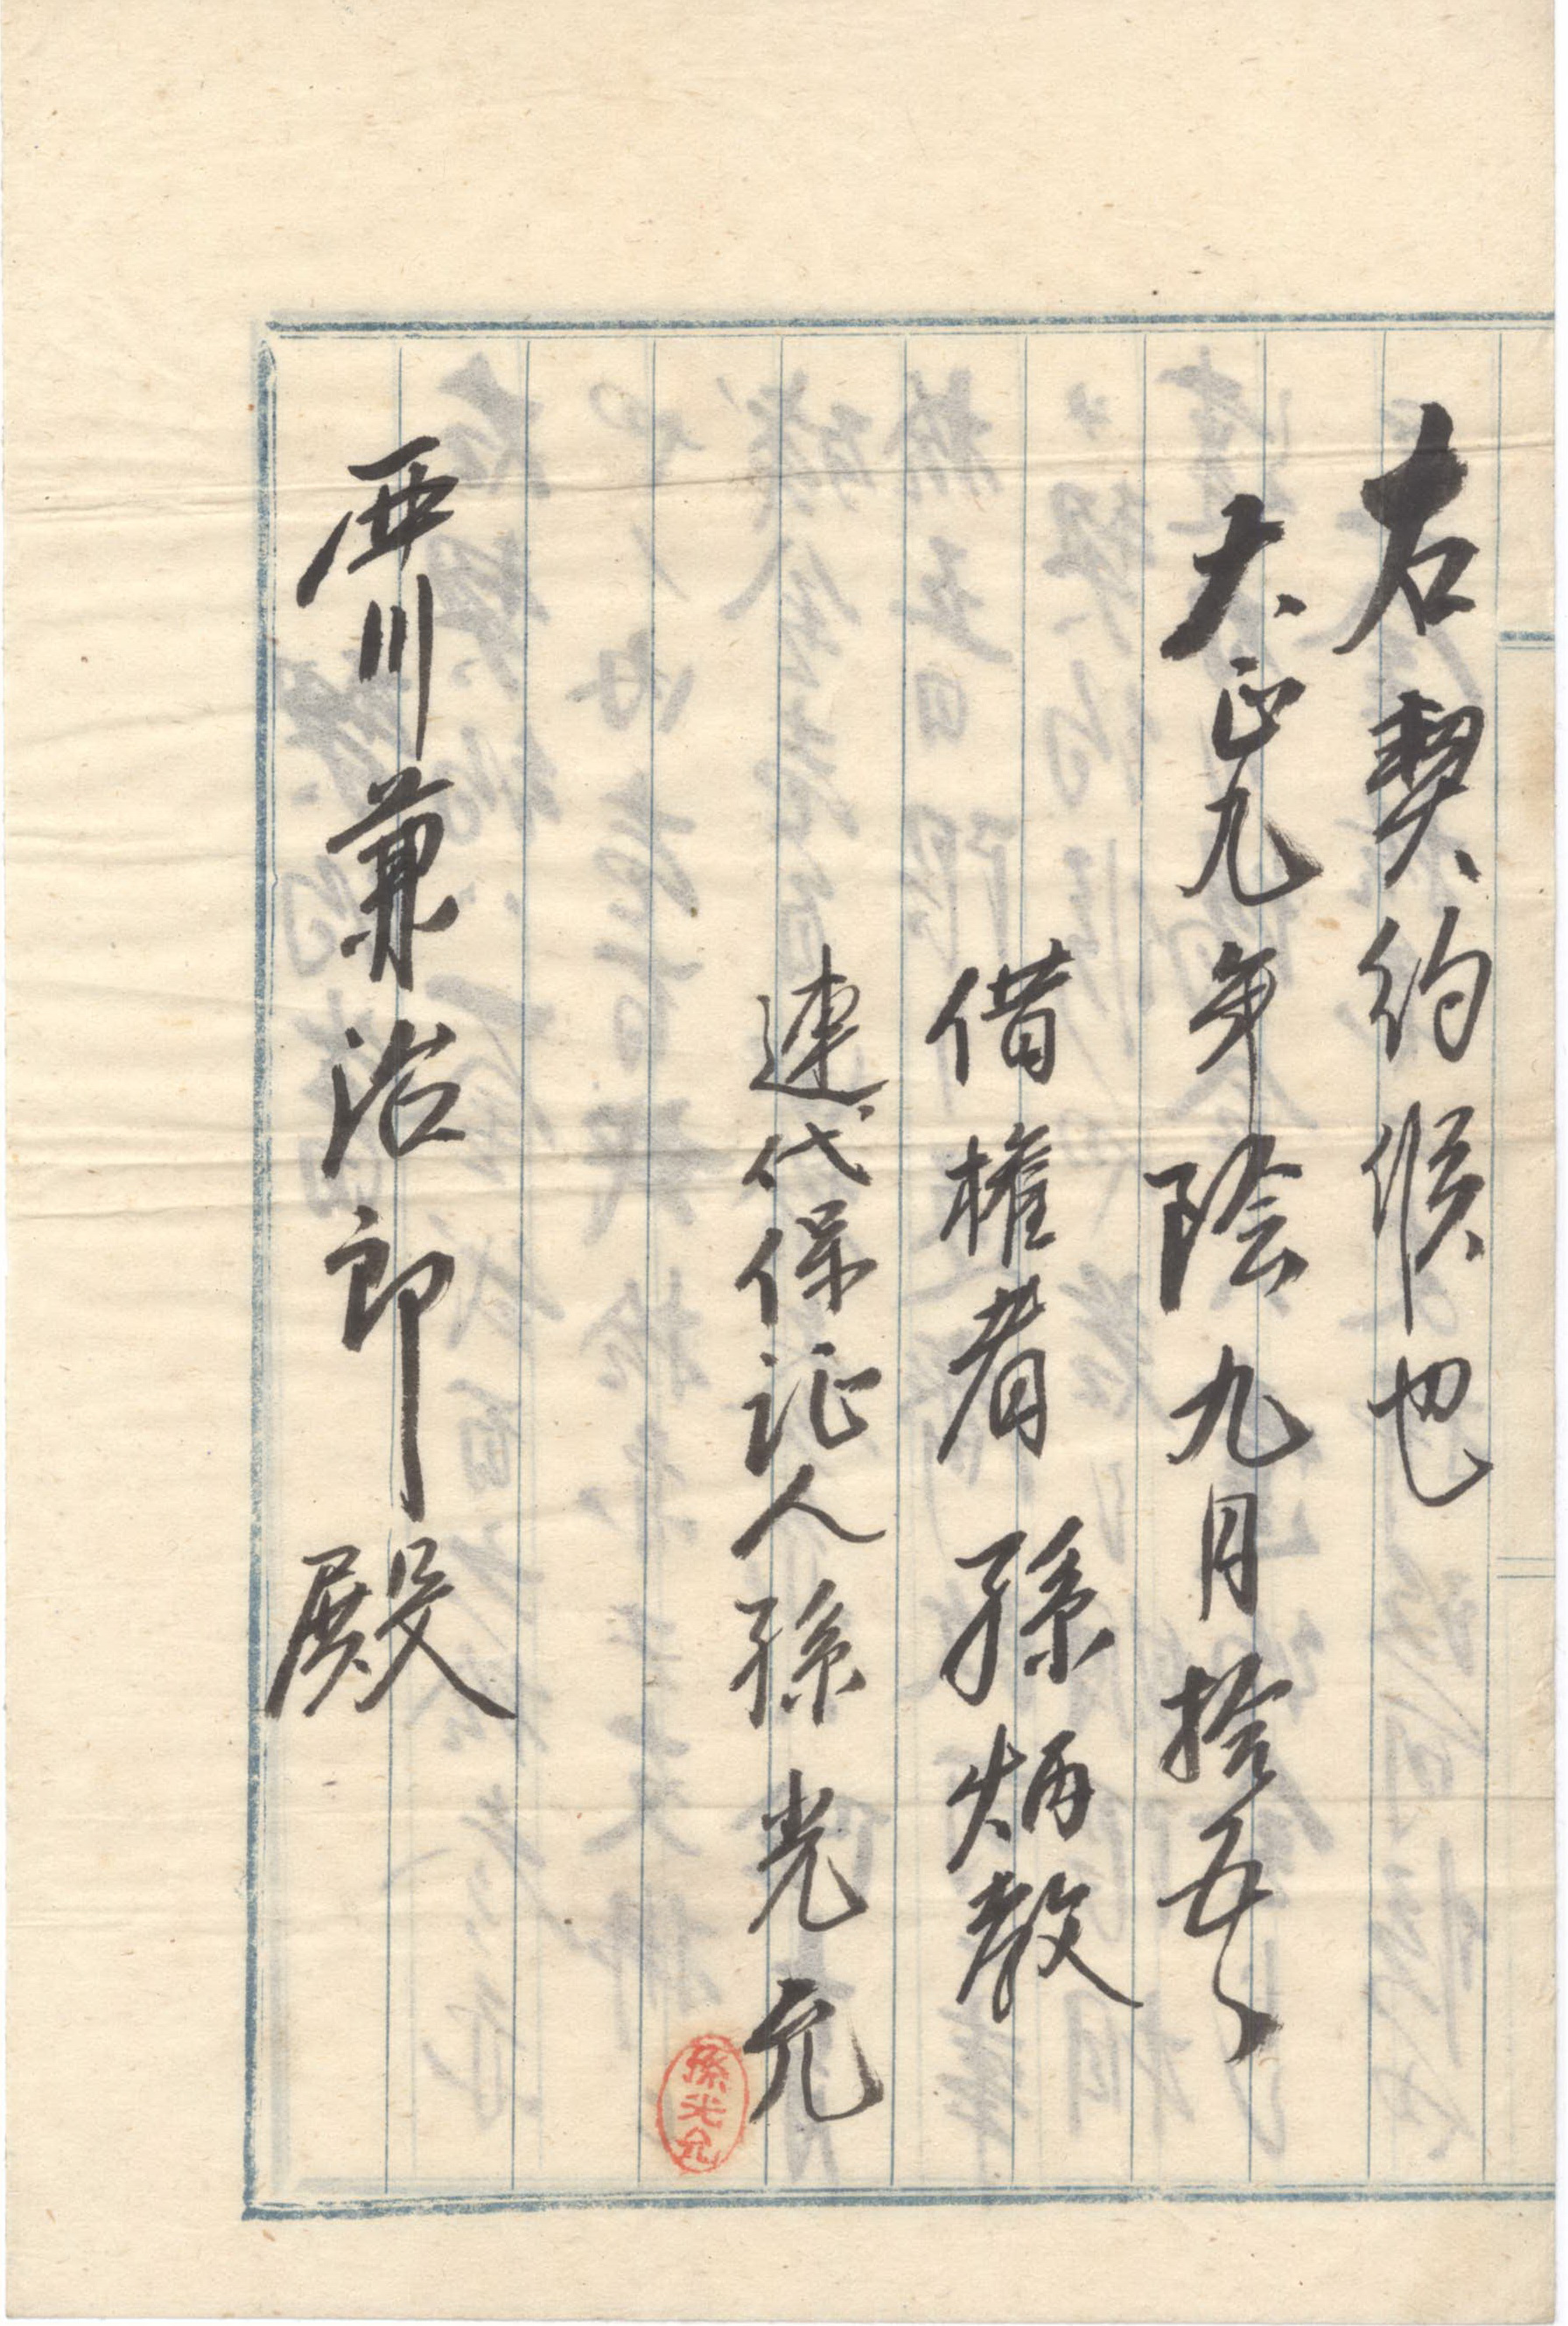 右契約候也
大正九年陰九月拾五日
借権者 孫炳教
連代保证人孫光允
孫光允
西川兼治郎殿